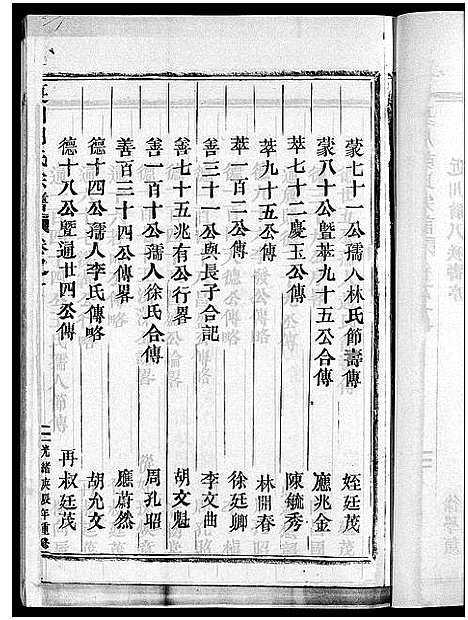 蒙七十一公孺人林氏節壽傳 姪廷茂
蒙八十公暨萃九十五公合傳 應兆金
萃七十二慶玉公傳 陳毓秀
萃九十五公傳 林開春
萃一百二公傳 徐廷卿
善三十一公與長子合記 李文曲
善七十五兆有公行畧 胡文魁
善一百十公孺人徐氏合傳 周孔昭
善百三十四公傳畧 應蔚然
德十四公孺人李氏傳略 胡允文
德十八公暨通廿四公傳 再叔廷茂
氏宗譜 卷之一 光緒庚辰年重修